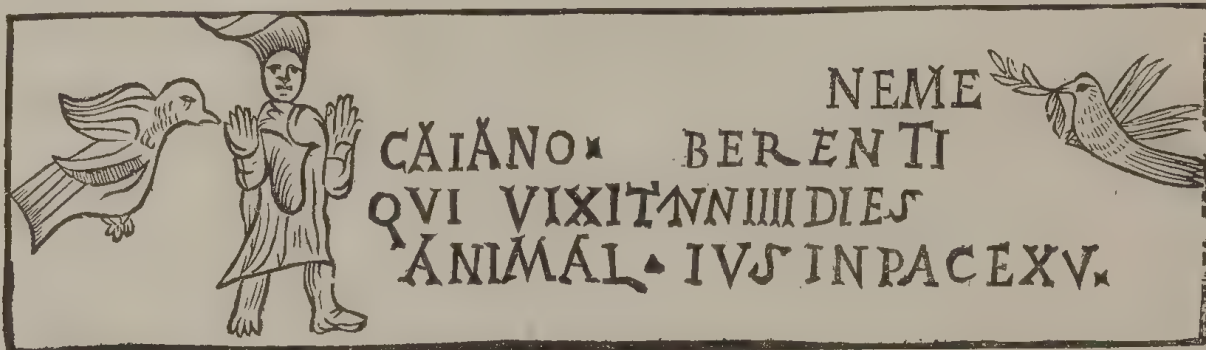 NEME
CAIANO × BERENTI
QVI VIXIT ANNIIIIDIES
ANIMAL · IVS INPACEXV ×